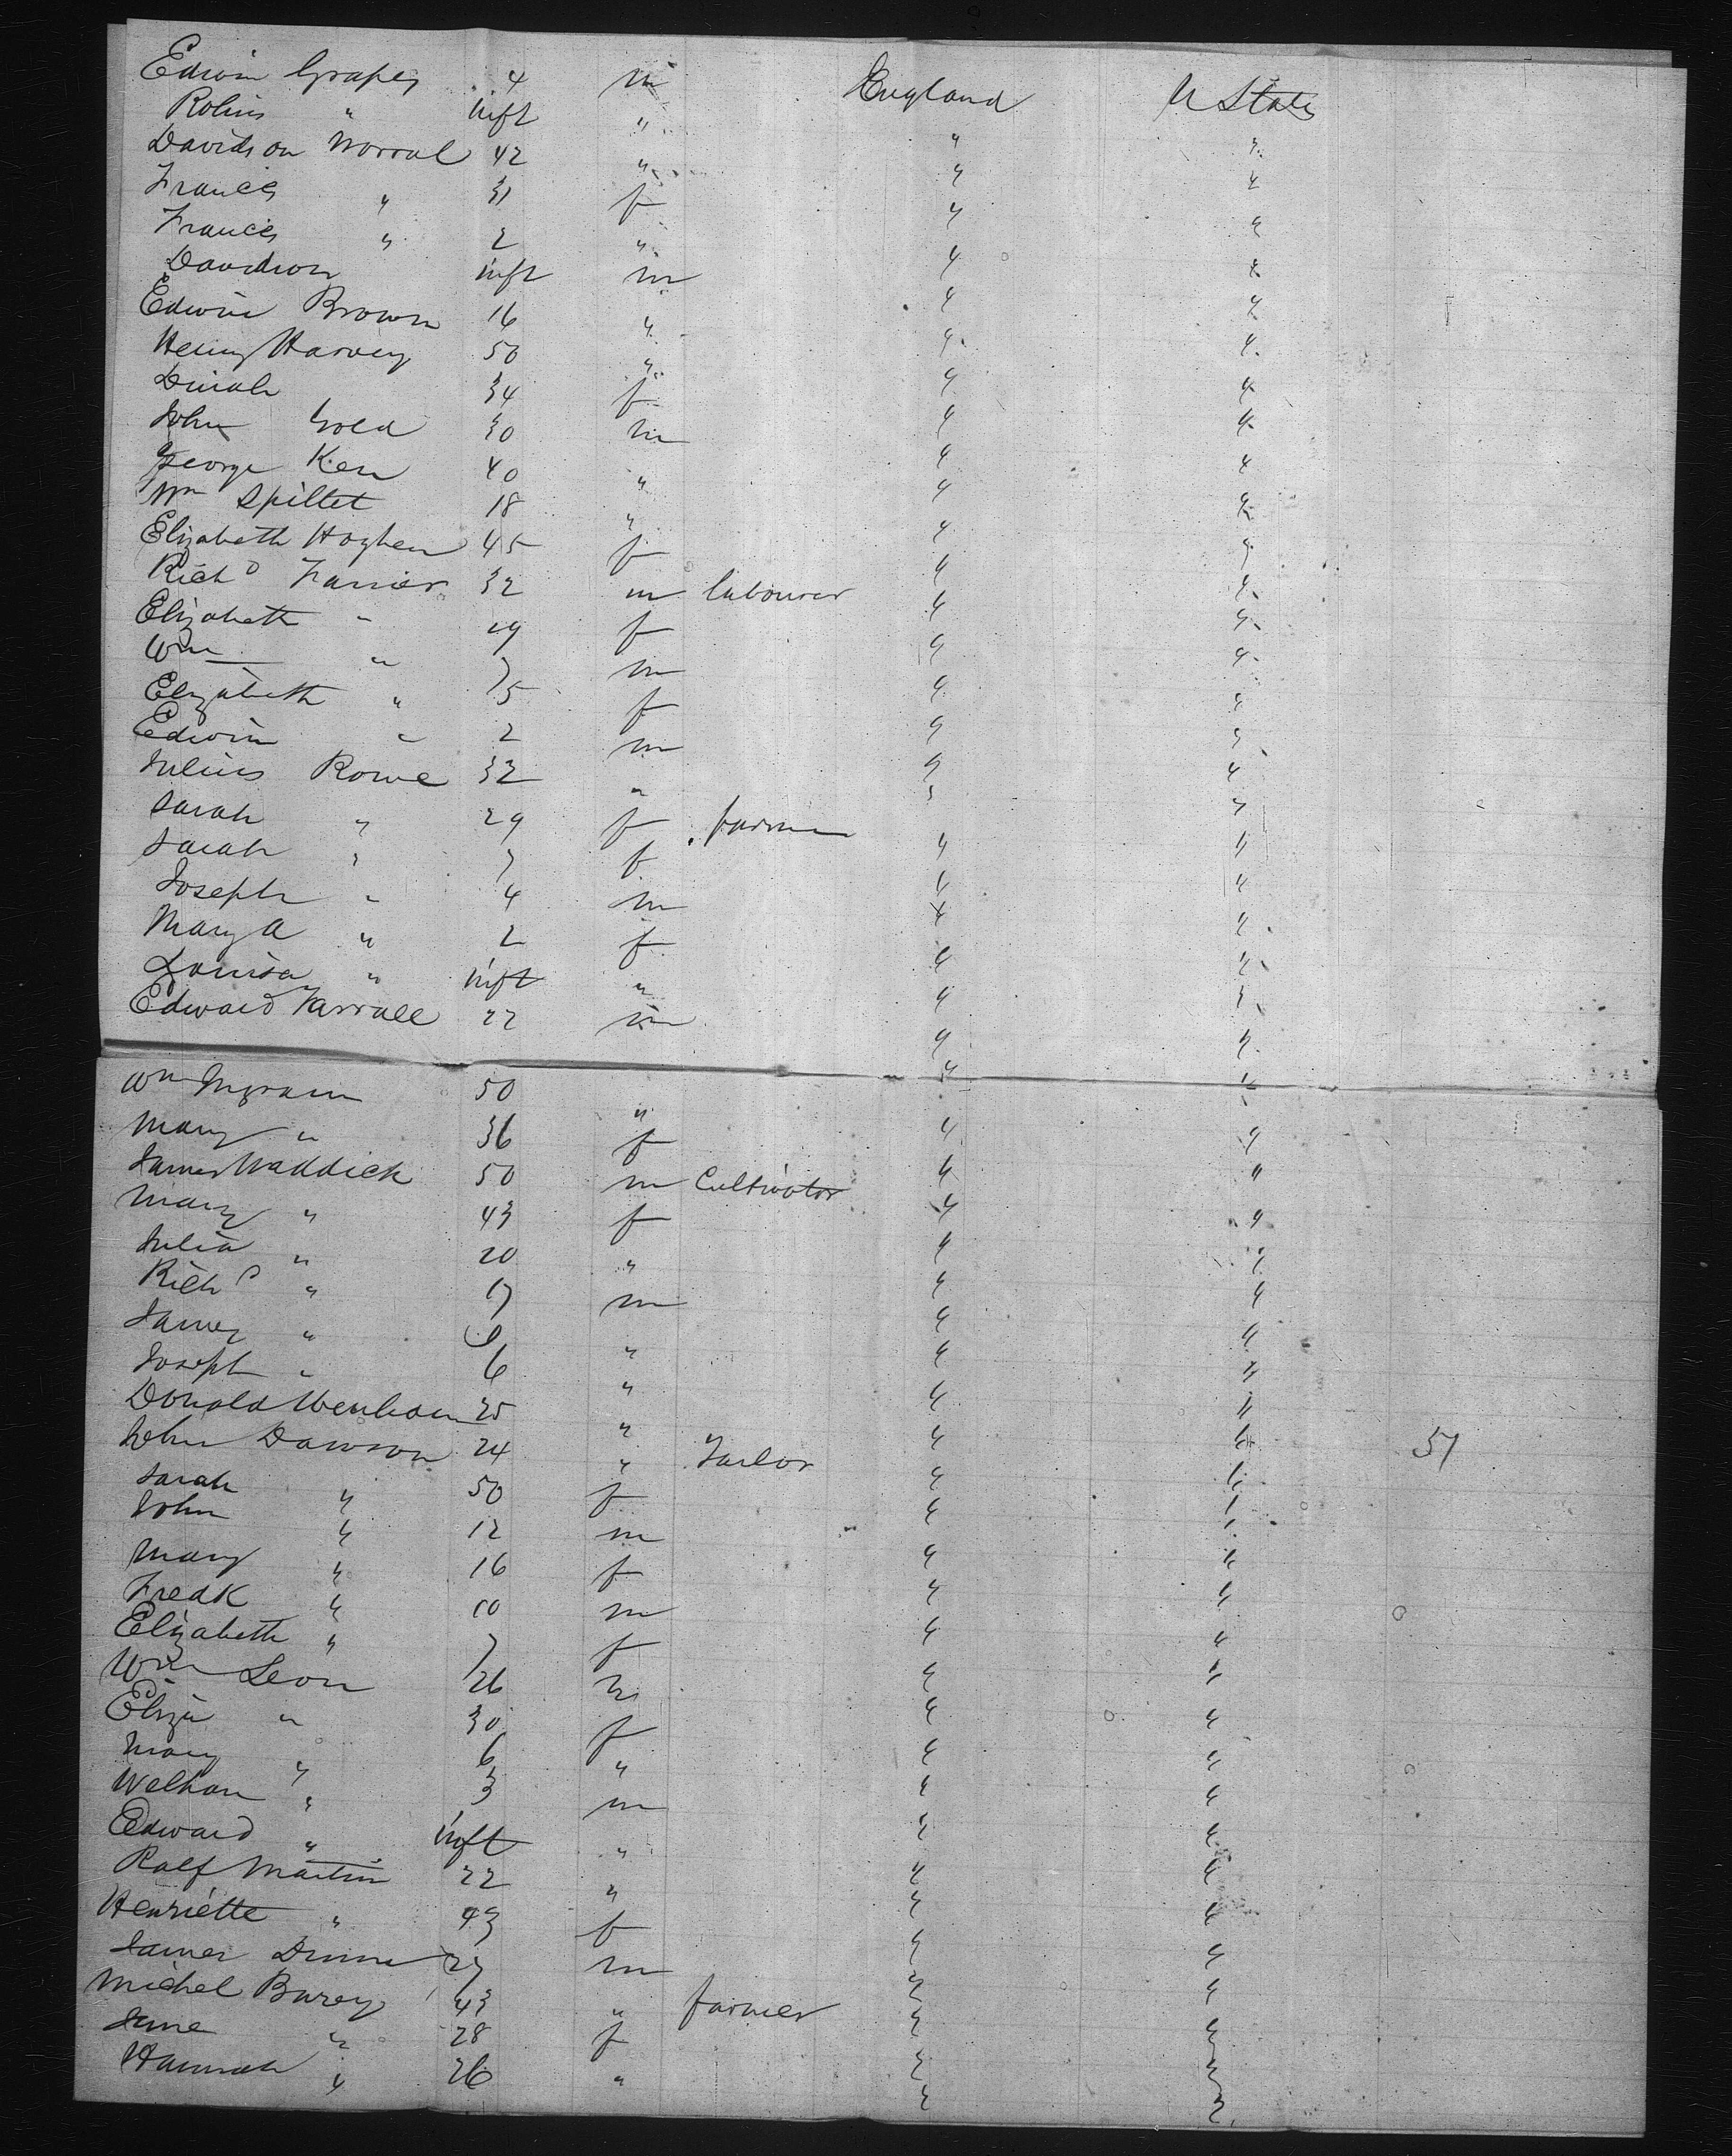 Edwin Grapes 4 m England U States
Robins " inft " " "
Davidson Worral 42 " " "
Francis " 31 f " "
Francis " 2 " " "
Davidson inft m " "
Edwin Brown 16 " " "
Henry Harvey 50 " " "
Dinah 34 f " "
John Gold 30 m " "
George Ken 40 " " "
Wm Spillet 18 " " "
Elizabeth Hoghen 45 f " "
Richd Farrier 32 m labourer " "
Elizabeth " 29 f " "
Wm " 7 m " "
Elizabeth " 5 f " "
Edwin " 2 m " "
Julius Rowe 32 " " "
Sarah " 29 f farmer " "
Sarah " 7 f " "
Joseph " 4 m " "
Mary A " 2 f " "
Louisa " inft " " "
Edward Varrall 22 m " "
Wm Ingram 50 " " "
Mary " 36 f " "
James Waddick 50 m Cultivator " "
Mary " 43 f " "
Julia " 20 " " "
Richd " 17 m " "
James " " " "
Joseph " 6 " " "
Donald Wenham 25 " " "
John Dawson 24 " Tailor " " 51
Sarah " 50 f " "
John " 12 m " "
Mary " 16 f " "
Fredk " 10 m " "
Elizabeth " 7 f " "
Wm Leon 26 m " "
Eliza " 30 f " "
Mary " 6 " " "
Welhan " 3 m " "
Edward " inft " " "
Ralf Martin 22 " " "
Henriette " 43 f " "
James Dunne 27 m " "
Michel Burey 43 " farmer " "
Jane " 28 f " "
Hannah " 26 " " "